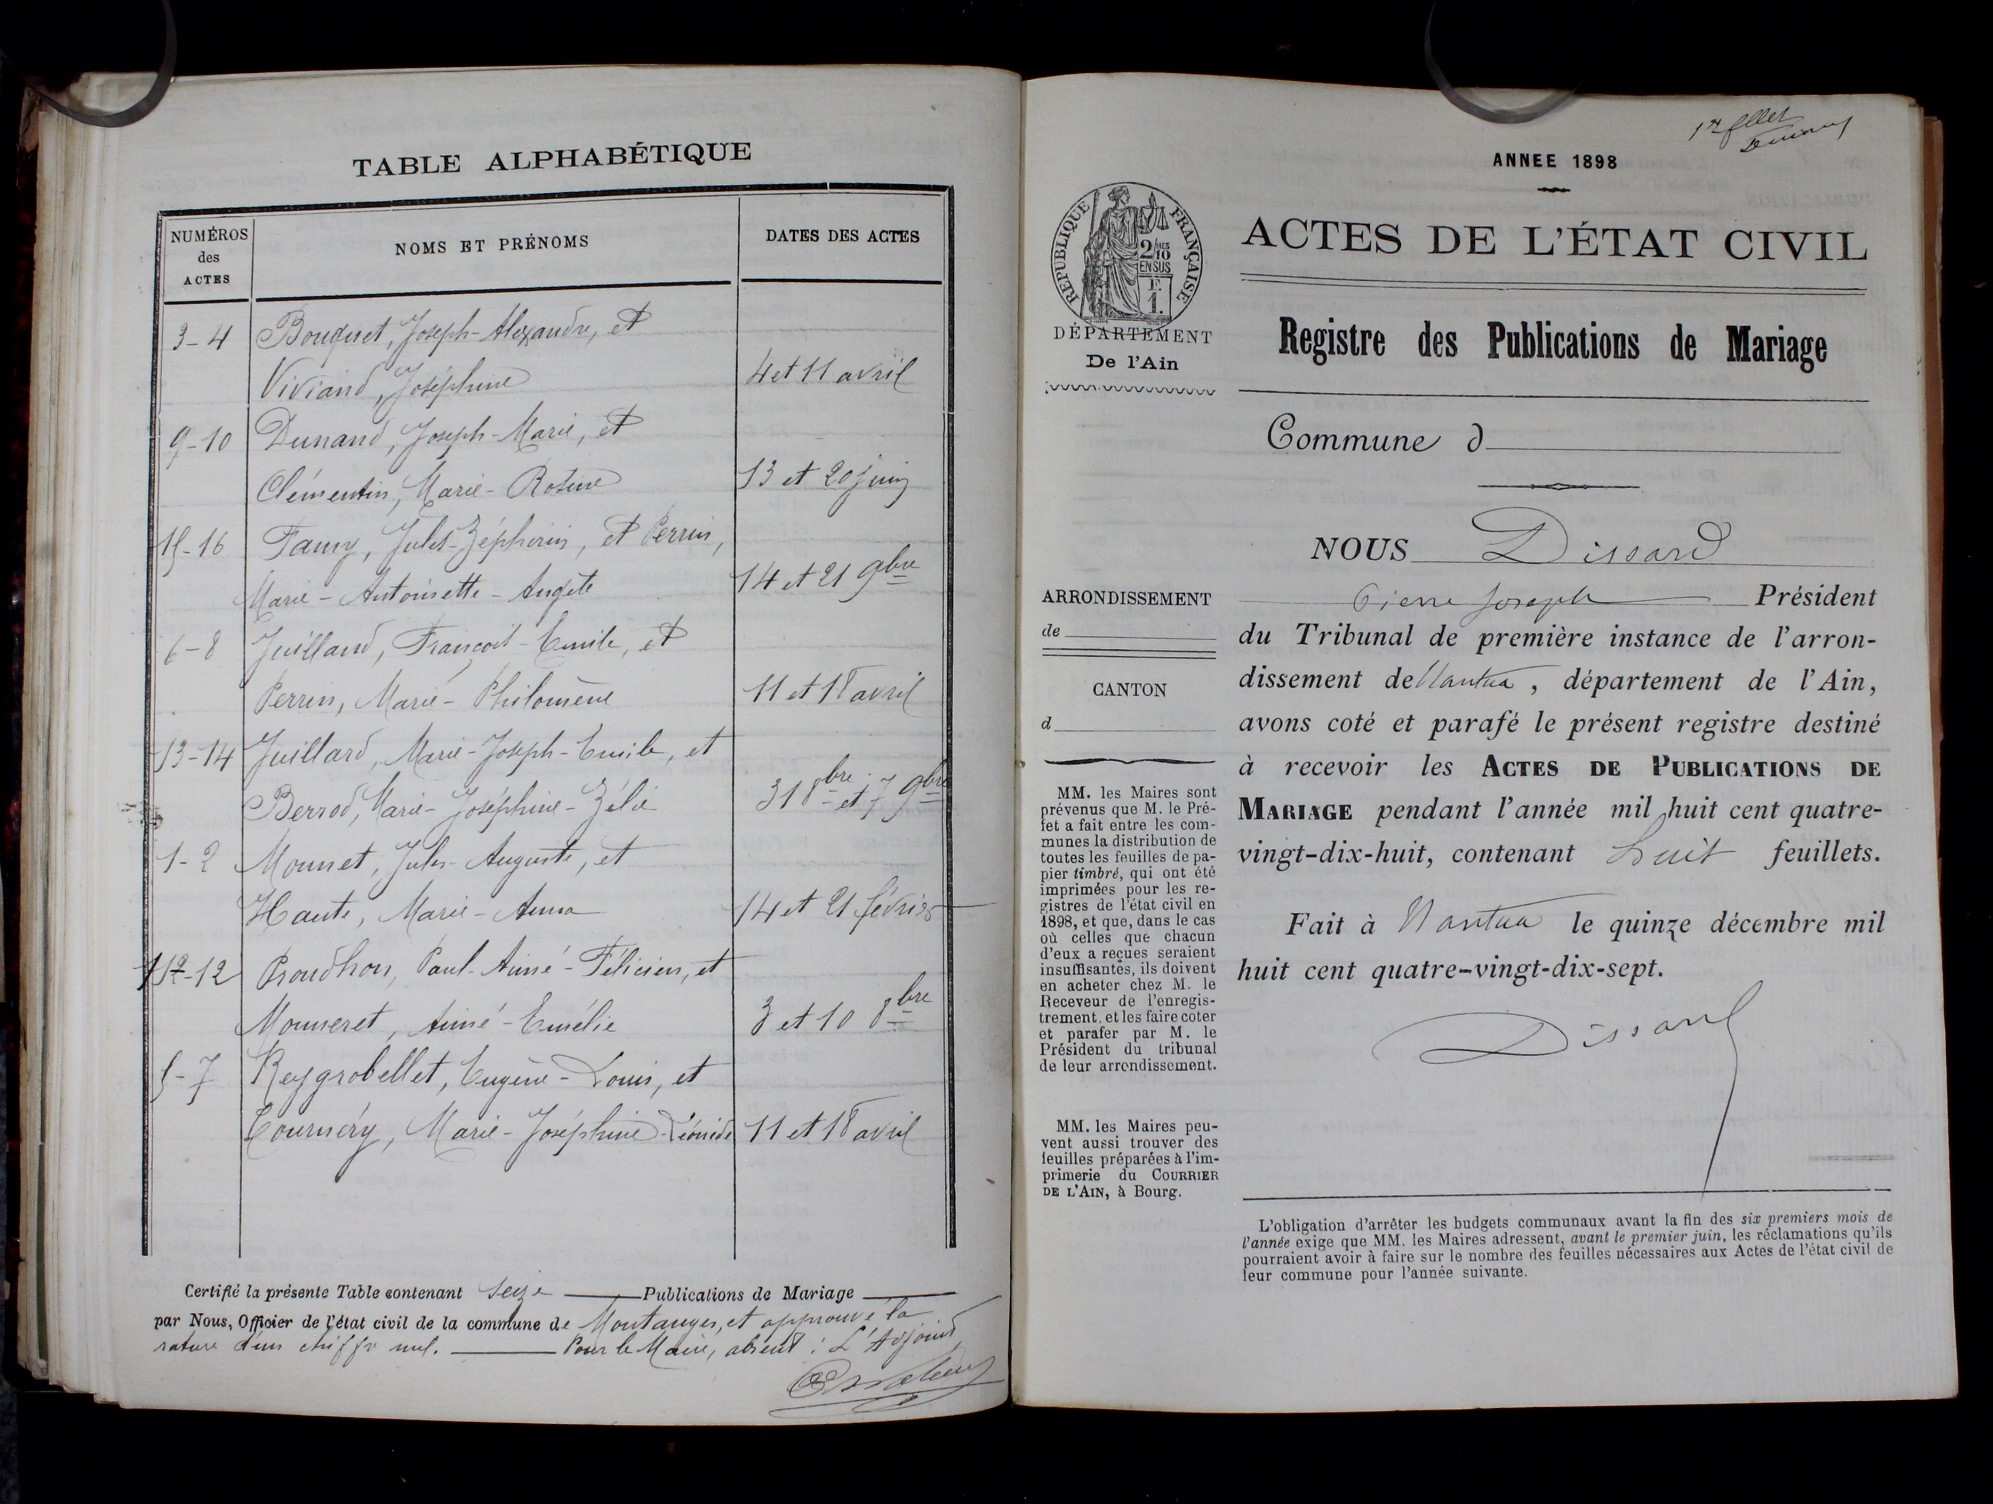 TABLE ALPHABÉTIQUE
NUMÉROS des ACTES
NOMS ET PRÉNOMS
DATES DES ACTES
3-4 Bouquet, Joseph-Alexandre, et
Viviand, Joséphine 4 et 11 avril
9-10 Dunand, Joseph-Marie, et
Clémentin, Marie-Rosine 13 et 20 juin
15-16 Famy, Jules-Zéphirin, et Perrin,
Marie-Antoinette-Angèle 14 et 21 9bre
6-8 Juilland, François-Emile, et
Perrin, Marie-Philomène 11 et 18 avril
13-14 Juillard, Marie-Joseph-Emile, et
Berrod, Marie-Joséphine-Zélie 31 8bre et 7 9bre
1-2 Mounet, Jules-Auguste, et
Haute, Marie-Anna 14 et 21 février
11-12 Proudhon, Paul-Aimé-Félicien, et
Mouneret, Aimé-Emélie 3 et 10 8bre
5-7 Reygrobellet, Eugène-Louis, et
Tournéry, Marie-Joséphine-Léonide 11 et 18 avril
Certifié la présente Table contenant seize Publications de Mariage
par Nous, Officier de l'état civil de la commune de Montanges, et approuvé la
rature d'un chiffre nul. Pour le Maire, absent : L'Adjoint
1er fllet
ANNEE 1898
RÉPUBLIQUE FRANÇAISE
2/10
EN SUS
F.
1.
DÉPARTEMENT
De l'Ain
ACTES DE L'ÉTAT CIVIL
Registre des Publications de Mariage
Commune d
NOUS Dissard
Pierre Joseph Président
du Tribunal de première instance de l'arron-
dissement de Nantua, département de l'Ain,
avons coté et parafé le présent registre destiné
à recevoir les ACTES DE PUBLICATIONS DE
MARIAGE pendant l'année mil huit cent quatre-
vingt-dix-huit, contenant huit feuillets.
Fait à Nantua le quinze décembre mil
huit cent quatre-vingt-dix-sept.
Dissard
ARRONDISSEMENT
de
CANTON
d
MM. les Maires sont
prévenus que M. le Pré-
fet a fait entre les com-
munes la distribution de
toutes les feuilles de pa-
pier timbré, qui ont été
imprimées pour les re-
gistres de l'état civil en
1898, et que, dans le cas
où celles que chacun
d'eux a reçues seraient
insuffisantes, ils doivent
en acheter chez M. le
Receveur de l'enregis-
trement, et les faire coter
et parafer par M. le
Président du tribunal
de leur arrondissement.
MM. les Maires peu-
vent aussi trouver des
feuilles préparées à l'im-
primerie du COURRIER
DE L'AIN, à Bourg.
L'obligation d'arrêter les budgets communaux avant la fin des six premiers mois de
l'année exige que MM. les Maires adressent, avant le premier juin, les réclamations qu'ils
pourraient avoir à faire sur le nombre des feuilles nécessaires aux Actes de l'état civil de
leur commune pour l'année suivante.